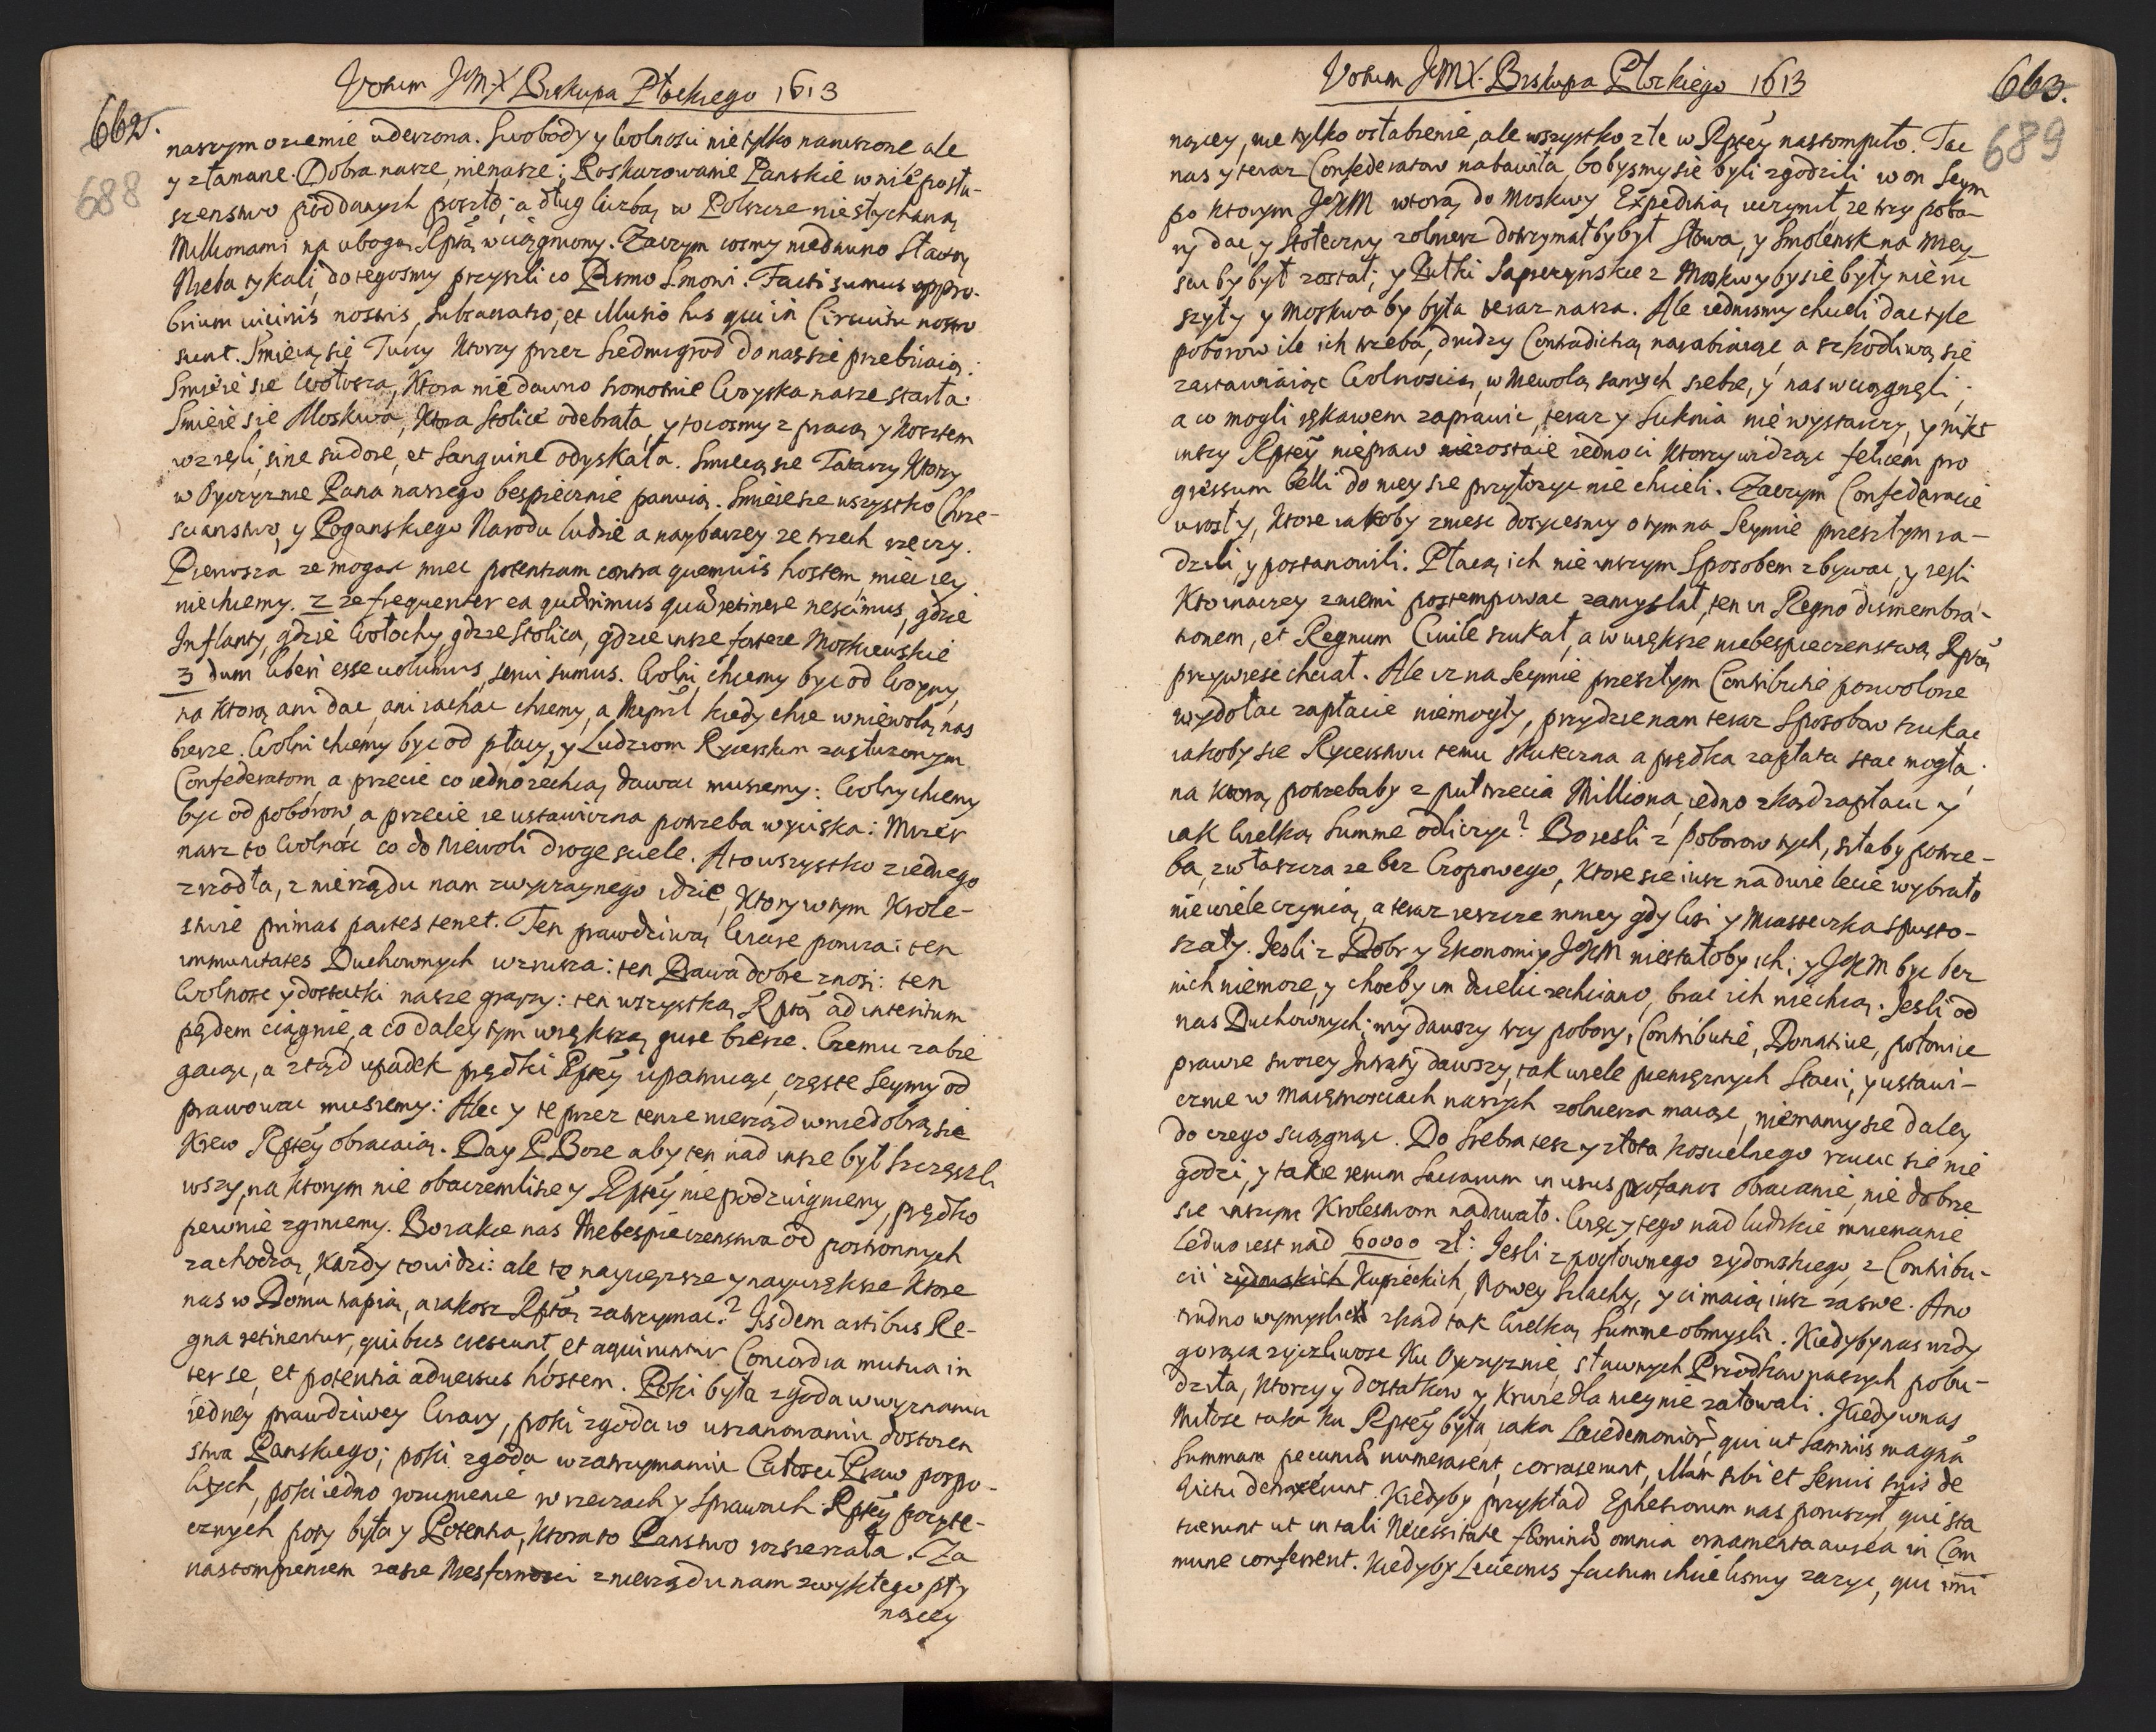 Votum JeM X Biskupa Płockiego 1613
662.
688
naszym oziemie uderzona. Swobody y Wolnosci nie tylko naruszone ale
y złamane. Dobra nasze, nienasze; Roskazowanie Panskie w nie postu-
szenstwo poddanych poszło; a dług liczbą w Polszcze niesłychaną
Millionami na ubogą Rptą wciągniony. Zaczym cosmy niedawno Sławą
Nieba tykali, do tegosmy przyszli co Pismo S. mowi. Facti sumus oppro-
brium vicinis nostris, subsanatio, et illusio his qui in Circuitu nostro
sunt. Smieią się Turcy ktorzy przez Siedmigrod do nas sie przebiiaią:
Smieie sie Wołosza, ktora niedawno sromotnie Woyska nasze starła.
Smieie sie Moskwa, ktora Stolice odebrała, y to cosmy z pracą y kosztem
wzięli, sine sudore, et sanguine odyskała. Smieią sie Tatarzy ktorzy
w Oyczyznie Pana naszego bespiecznie panuią. Smieie sie wszystko Chrze-
scianstwo, y Poganskiego Narodu ludzie a naybarzey ze trzech rzeczy.
Pierwsza ze mogąc miec potentiam contra quemuis hostem, miec iey
niechcemy. 2 ze frequenter ea quaerimus quae retinere nescimus, gdzie
Inflanty, gdzie Wołochy, gdzie Stolica, gdzie insze fortece Moskiewskie
3 dum liberi esse uolumus, serui sumus. Wolni chcemy byc od Woyny,
na ktorą ani dac, ani iachac chcemy, a Nieprl kiedy chce w niewolą nas
bierze. Wolni chcemy byc od płacy, y Ludziom Rycerskim zasłuzonym
Confederatom, a przecie co iedno zechcą, dawac musiemy: Wolny chcemy
byc od poborow, a przecie ie ustawiczna potrzeba wyciska: Mizer
nasz to Wolnosc co do Niewoli droge sciele. A to wszystko z iednego
zrzodła, z nierządu nam zwyczaynego idzie, ktory w tym Krole-
stwie primas partes tenet. Ten prawdziwą Wiare porusza: ten
immunitates Duchownych wzrusza: ten Prawa dobre znosi: ten
Wolnosc y dostatki nasze grązy: ten wszystką Rptą ad interitum
pędem ciągnie, a co daley tym większą gure bierze. Czemu zabie
gaiąc, a ztąd upadek prędki Rptey upatruiąc, częste Seymy od
prawowac musiemy: Alec y te przez tenze nierząd w niedobrą się
Krew Rptey obracaią. Day P. Boze aby ten nad insze był szczęszli
wszy, na ktorym nie obaczemli sie y Rptey niepodzwigniemy, prędko
pewnie zginiemy. Bo iakie nas Niebespieczenstwa od postronnych
zachodzą, kazdy to widzi: ale te naycięzsze y naywiększe ktore
nas w Domu trapią, a iakosz Rptą zatrzymac? Iisdem artibus Re-
gna retinentur, quibus crescunt, et aquiruntur Concordia mutua in
ter se, et potentia aduersus hostem. Poki była zgoda w wyznaniu
iedney prawdziwey Wiary, poki zgoda w uszanowaniu dostoien
stwa Panskiego; poki zgoda w zatrzymaniu Całosci Praw pospo-
litych, poki iedno rozumienie w rzeczach y Sprawach Rptey pozyte-
cznych poty była y Potentia, ktora to Panstwo rozszerzała. Za
nastompieniem zasie Niesfornosci z nierządu nam zwykłego pły
nącey
Votum JeM X. Biskupa Płockiego 1613
663.
689
nącey, nie tylko osłabienie, ale wszystko złe w Rptey nastompiło. Tac
nas y teraz Confederatow nabawiła, bo bysmy sie byli zgodzili w on Seym
po ktorym JKM wtorą do Moskwy Expeditią uczynił, ze trzy pobo-
ry dac, y Stołeczny zolnierz dotrzymałby był Słowa, y Smolensk na miey-
scu by był został; y Pułki Sapiezynskie z Moskwy by sie były nie ru
szyły y Moskwa by była teraz nasza. Ale iednismy chcieli dac tyle
poborow ile ich trzeba, drudzy Contradictią narabiaiąc a szkodliwą się
zastawiaiąc Wolnoscią, w Niewolą samych siebie, y nas wciągnęli;
a co mogli rękawem zaprawic, teraz y Suknia nie wystarczy, y nikt
inszy Rptey niepraw niezostaie iedno ci ktorzy widząc felicem pro
gressum belli do niey sie przyłozyc nie chcieli. Zaczym Confederacie
urosły, ktore iakoby zniesc dosycesmy o tym na Seymie przeszłym ra-
dzili, y postanowili. Płacą ich nie inszym Sposobem zbywac, y iesli
kto inaczey z niemi postempowac zamyslał, ten in Regno dismembra-
tionem, et Regnum Ciuile szukał, a w większe niebespieczenstwa Rptą
przywiesc chciał. Ale iz na Seymie przeszłym Contributie pozwolone
wydołac zapłacie niemogły, przydzie nam teraz Sposobow szukac
iakoby sie Rycerstwu temu skuteczna a prędka zapłata stac mogła
na ktorą potrzebaby z puł trzecia Milliona, iedno zkąd zapłacic y
iak Wielką Summe odliczyc? Bo iesli z Poborow tych, siłaby potrze-
ba, zwłaszcza ze bez Czopowego, ktore sie iusz na dwie lecie wybrało
niewiele czynią, a teraz ieszcze mniey gdy Wsi y Miasteczka spusto-
szały. Jesli z Dobr y Ekonomiy JKM niestałoby ich; y JKM byc bez
nich niemoze, y chocby im dzielic zechciano, brac ich niechcą. Jesli od
nas Duchownych; my dawszy trzy pobory, Contributie, Donatiue, połowice
prawie swoiey Intraty dawszy, tak wiele pieniężnych Stacii, y ustawi-
cznie w Maiętnosciach naszych zolnierza maiąc, niemamy sie daley
do czego sciągnąc. Do Srebra tesz y złota koscielnego rzucic sie nie
godzi, y takie rerum Sacrarum in usus profanos obracanie, nie dobrze
sie inszym Krolestwom nadawało. Więc y tego nad ludzkie mniemanie
ledwo iest nad 60000 zł: Jesli z pogłownego zydowskiego, z Contribu-
cii zydowskich Kupieckich, Nowey Szlachty, y ci maią iusz za swe. Ano
trudno wymyslic zkąd tak Wielką Summe obmyslic. Kiedyby nas wzdy
gorąca zyczliwosc ku Oyczyznie, sławnych Przodkow naszych pobu-
dziła, ktorzy y dostatkow y krwie dla niey nie załowali. Kiedy w nas
Miłosc taka ku Rptey była, iaka Lacedemonior, qui ut Samniis magnã
Summam pecuniae numerarent, corraserunt, illam sibi et Seruis suis de
Victu detraxerunt. Kiedyby przykład Ephesiorum nas poruszył, qui sta
tuerunt ut in tali Necessitate faeminae omnia ornamenta aurea in Com
mune conferrent. Kiedyby factum chcielismy zazyc, qui